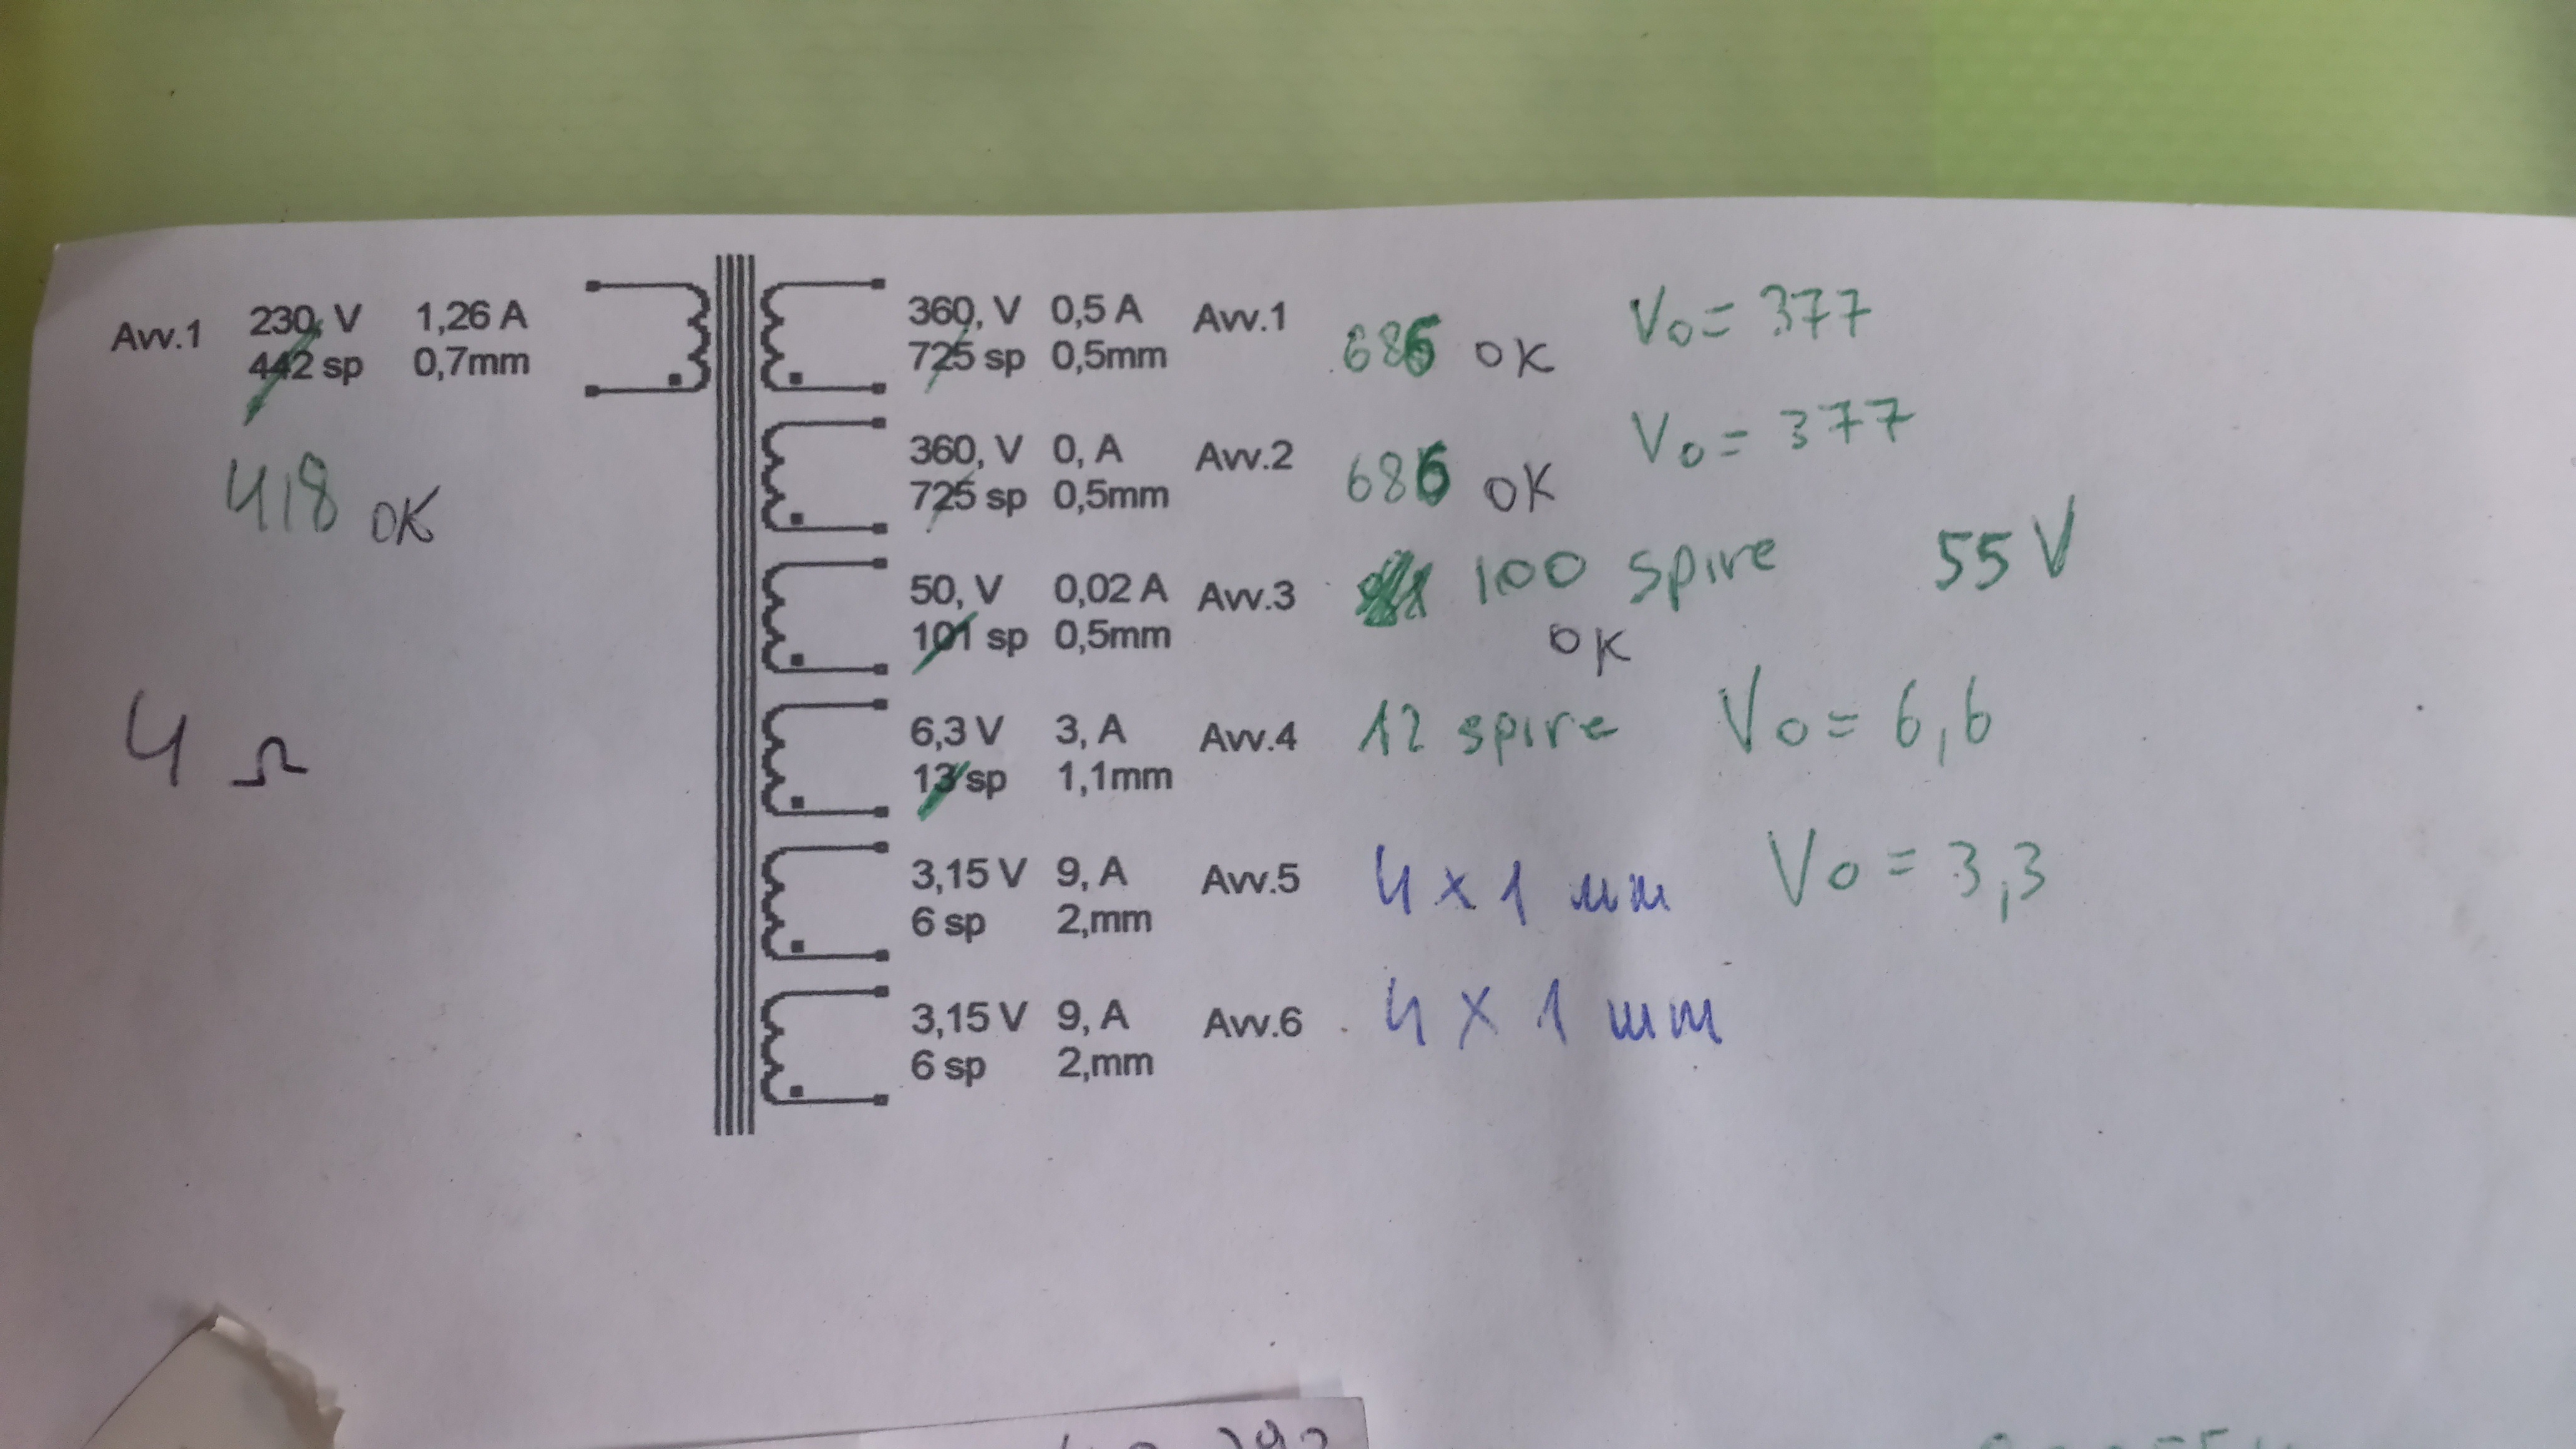 Avv.1 230, V 1,26 A
442 sp 0,7mm
418 OK
4 Ω
360, V 0,5 A Avv.1
725 sp 0,5mm
686 OK Vo = 377
360, V 0, A Avv.2
725 sp 0,5mm
686 OK Vo = 377
50, V 0,02 A Avv.3
101 sp 0,5mm
100 spire 55 V
OK
6,3 V 3, A Avv.4
13 sp 1,1mm
12 spire Vo = 6,6
3,15 V 9, A Avv.5
6 sp 2,mm
4 x 1 mm Vo = 3,3
3,15 V 9, A Avv.6
6 sp 2,mm
4 x 1 mm